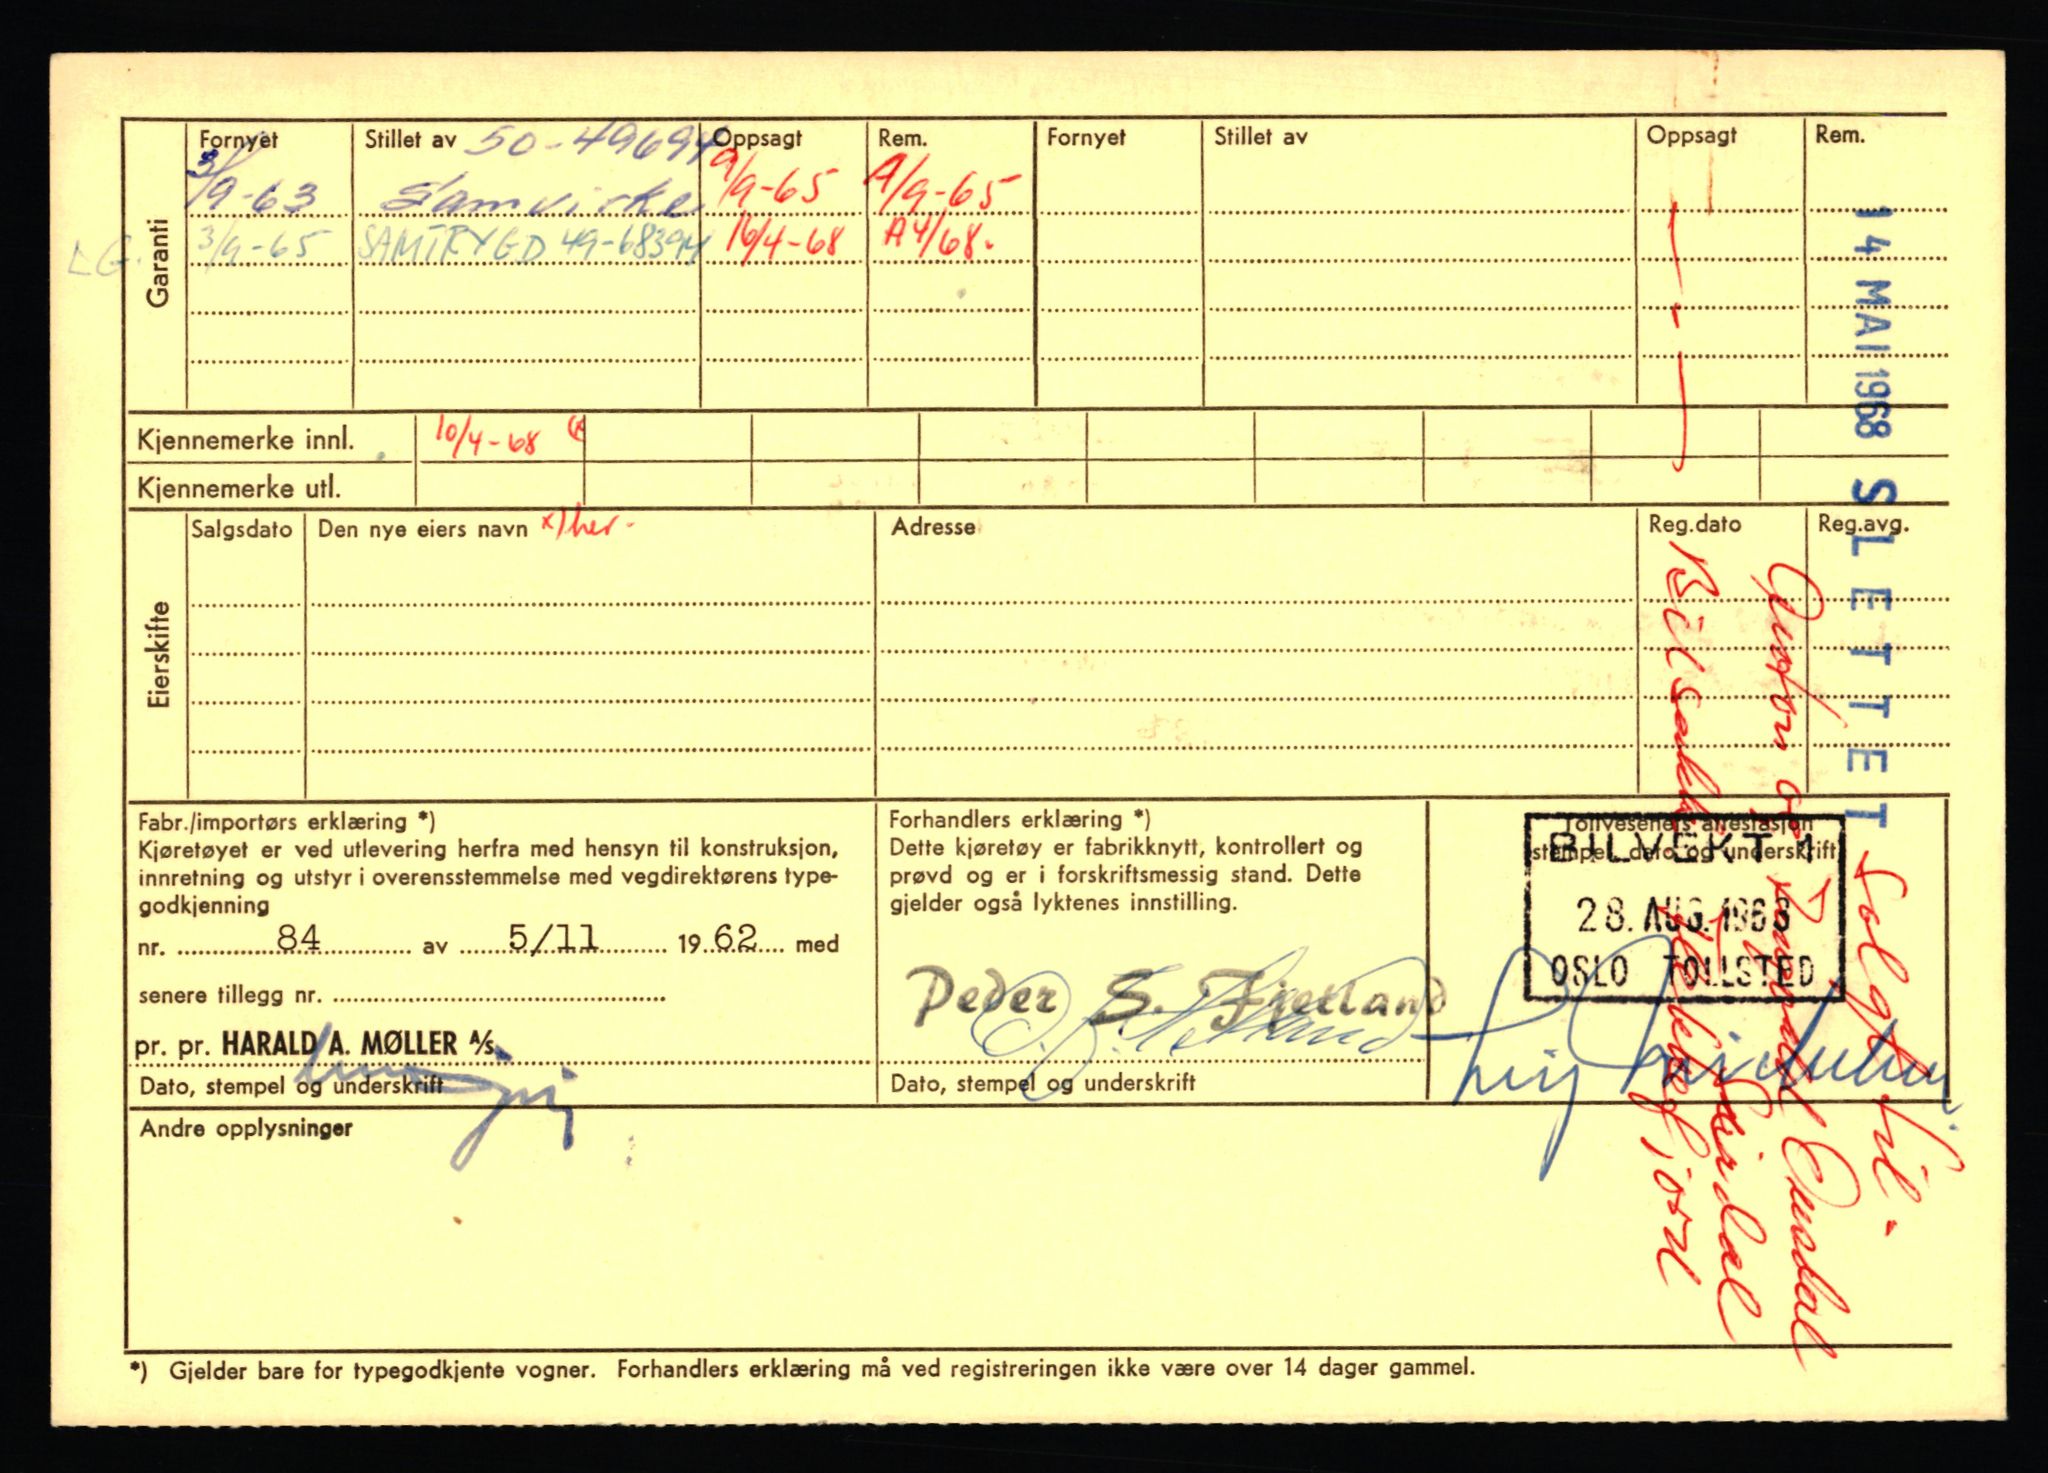 Fornyet Stillet av 50-49694 Oppsagt Rem. Fornyet Stillet av Oppsagt Rem.
3/9-63 Samvirke 9/9-65 A/9-65
L.G. 3/9-65 SAMTRYGD 49-68394 16/4-68 A4/68.
Garanti
Kjennemerke innl. 10/4-68
Kjennemerke utl.
Salgsdato Den nye eiers navn x) her. Adresse Reg.dato Reg.avg.
Eierskifte
14 MAI 1968 SLETTET
Solgt til
Fabr./importørs erklæring *)
Kjøretøyet er ved utlevering herfra med hensyn til konstruksjon,
innretning og utstyr i overensstemmelse med vegdirektørens type-
godkjenning
nr. 84 av 5/11 1962 med
senere tillegg nr.
pr. pr. HARALD A. MØLLER A/S.
Dato, stempel og underskrift
Forhandlers erklæring *)
Dette kjøretøy er fabrikknytt, kontrollert og
prøvd og er i forskriftsmessig stand. Dette
gjelder også lyktenes innstilling.
Peder S. Fjetland
Dato, stempel og underskrift
Tollvesenets attestasjon
stempel, dato og underskrift
BILVEKT 1
28. AUG. 1963
OSLO TOLLSTED
Andre opplysninger
*) Gjelder bare for typegodkjente vogner. Forhandlers erklæring må ved registreringen ikke være over 14 dager gammel.